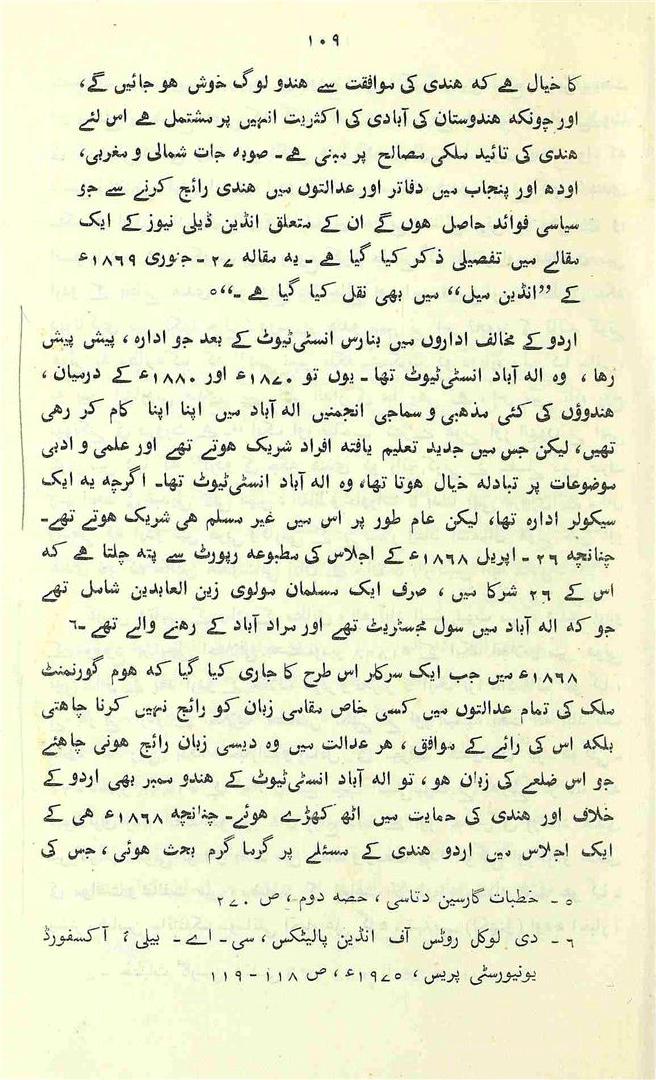 ۱۰۹
کا خیال ہے کہ ھندی کی موافقت سے ھندو لوگ خوش ہو جائیں گے،
اور چونکہ ھندوستان کی آبادی کی اکثریت انہیں پر مشتمل ہے اس لئے
ھندی کی تائید ملکی مصالح پر مبنی ہے۔ صوبہ جات شمالی و مغربی،
اودھ اور پنجاب میں دفاتر اور عدالتوں میں ھندی رائج کرنے سے جو
سیاسی فوائد حاصل ہوں گے ان کے متعلق انڈین ڈیلی نیوز کے ایک
مقالے میں تفصیلی ذکر کیا گیا ہے ۔ یہ مقالہ ۲۷ ۔ جنوری ۱۸۶۹ء
کے ”انڈین میل“ میں بھی نقل کیا گیا ہے ۔“۵
اردو کے مخالف اداروں میں بنارس انسٹی ٹیوٹ کے بعد جو ادارہ، پیش پیش
رہا ، وہ الہ آباد انسٹی ٹیوٹ تھا ۔ یوں تو ۱۸۷۰ء اور ۱۸۸۰ء کے درمیان،
ھندوؤں کی کئی مذہبی و سماجی انجمنیں الہ آباد میں اپنا اپنا کام کر رہی
تھیں، لیکن جس میں جدید تعلیم یافتہ افراد شریک ہوتے تھے اور علمی و ادبی
موضوعات پر تبادلہ خیال ہوتا تھا، وہ الہ آباد انسٹی ٹیوٹ تھا۔ اگرچہ یہ ایک
سیکولر ادارہ تھا، لیکن عام طور پر اس میں غیر مسلم ھی شریک ہوتے تھے۔
چنانچہ ۲۶ ۔ اپریل ۱۸۶۸ء کے اجلاس کی مطبوعہ رپورٹ سے پتہ چلتا ہے کہ
اس کے ۲۶ شرکا میں ، صرف ایک مسلمان مولوی زین العابدین شامل تھے
جو کہ الہ آباد میں سول مجسٹریٹ تھے اور مراد آباد کے رہنے والے تھے ۔۶
۱۸۶۸ء میں جب ایک سرکلر اس طرح کا جاری کیا گیا کہ ہوم گورنمنٹ
ملک کی تمام عدالتوں میں کسی خاص مقاسی زبان کو رائج نہیں کرنا چاہتی
بلکہ اس کی رائے کے موافق ، ھر عدالت میں وہ دیسی زبان رائج ہونی چاہئے
جو اس ضلعے کی زبان ہو ، تو الہ آباد انسٹی ٹیوٹ کے ھندو ممبر بھی اردو کے
خلاف اور ھندی کی حمایت میں اٹھ کھڑے ہوئے۔ چنانچہ ۱۸۶۸ء ھی کے
ایک اجلاس میں اردو ھندی کے مسئلے پر گرما گرم بحث ہوئی ، جس کی
۵ ۔ خطبات گارسین دتاسی ، حصہ دوم ، ص ۲۷۰
۶ ۔ دی لوکل روٹس آف انڈین پالیٹکس، سی ۔ اے ۔ بیلی ؛ آکسفورڈ
یونیورسٹی پریس ، ۱۹۷۵ء ، ص ۱۱۸ ۔ ۱۱۹